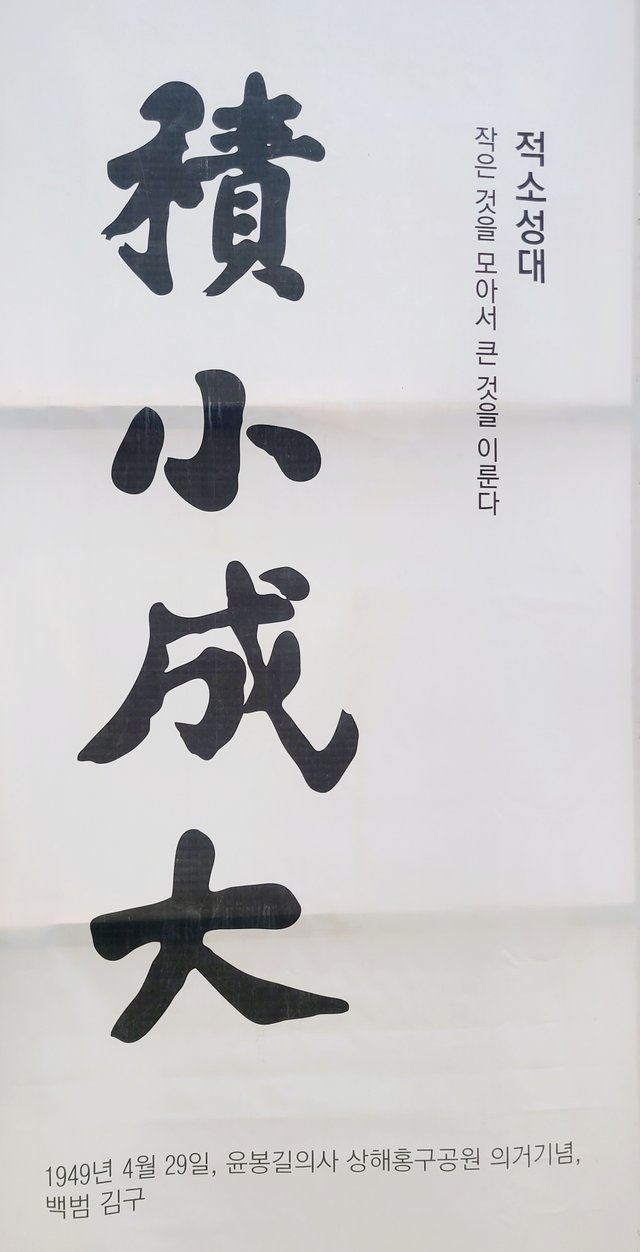 積小成大
적소성대
작은 것을 모아서 큰 것을 이룬다
1949년 4월 29일, 윤봉길의사 상해홍구공원 의거기념,
백범 김구